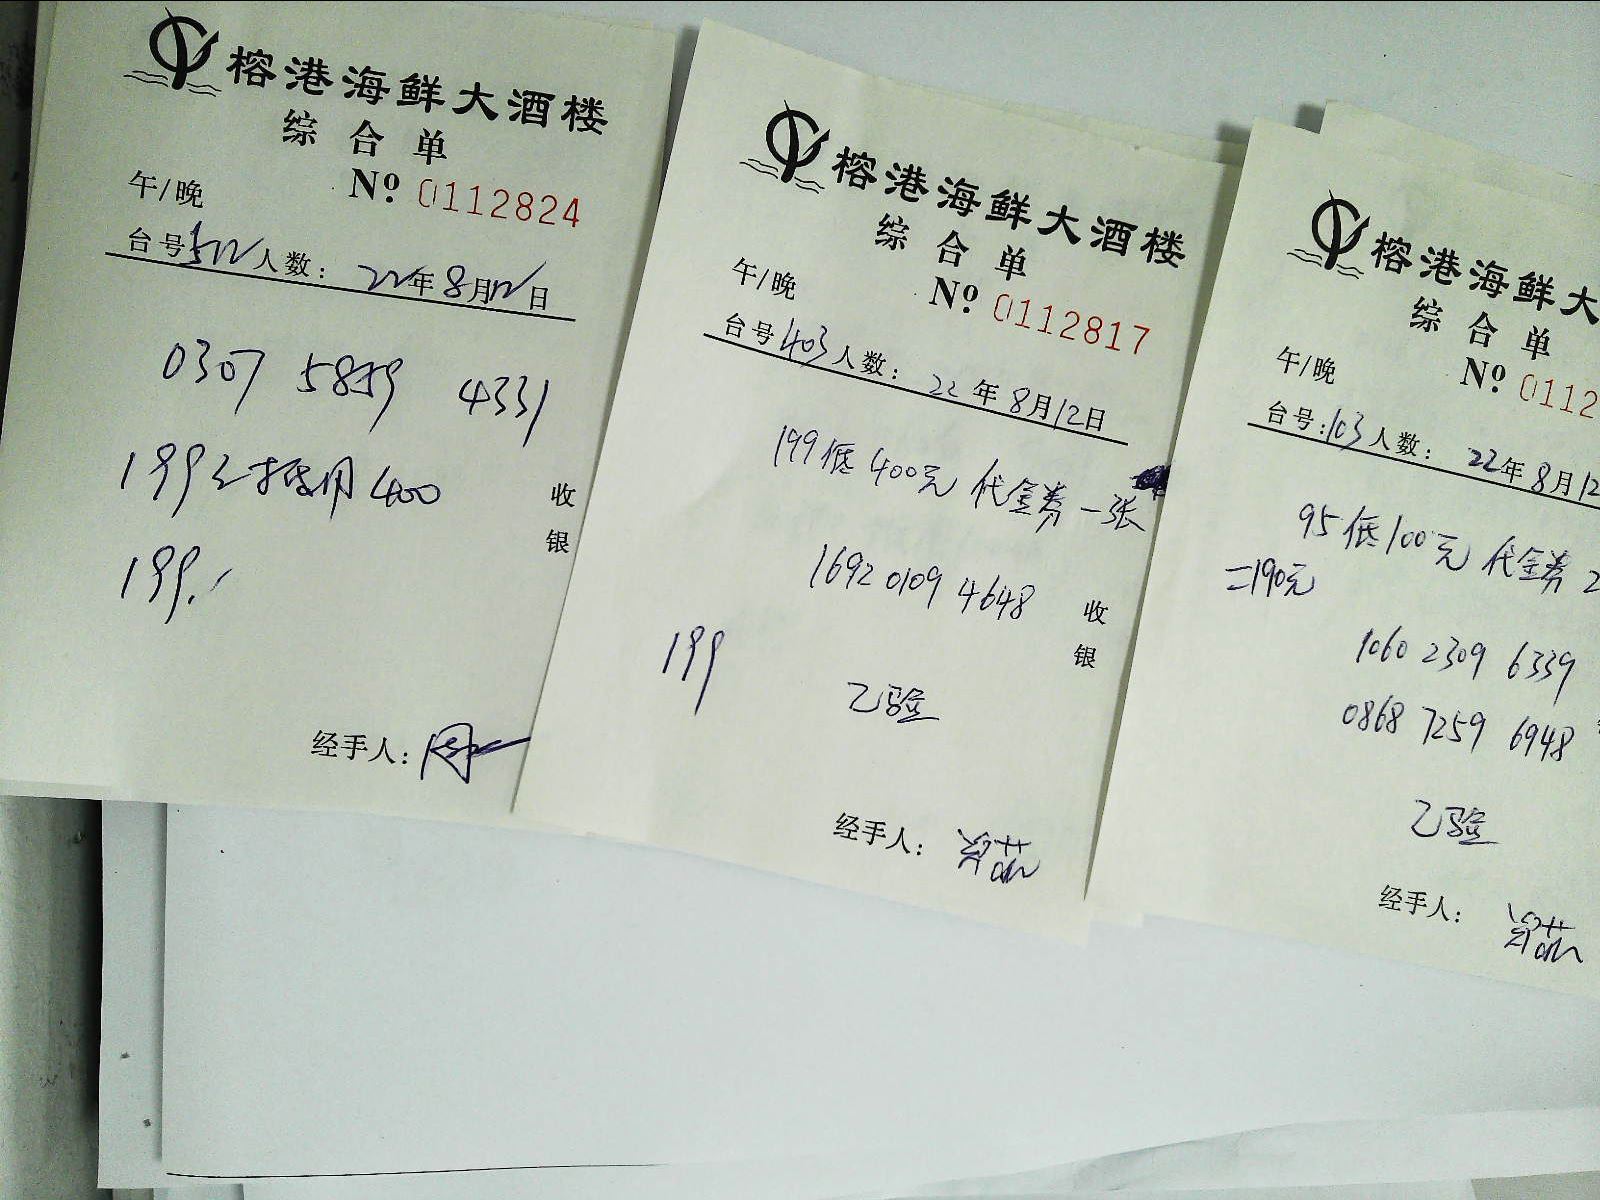 榕港海鲜大酒楼
综合单
午/晚 № 0112824
台号512人数: 22年8月12日
0307 5859 4331
199元抵用400
199.
收银
经手人:周
榕港海鲜大酒楼
综合单
午/晚 № 0112817
台号403人数: 22年8月12日
199低400元代金券一张
1692 0109 4648
收银
199
乙验
经手人:
榕港海鲜大
综合单
午/晚 № 0112
台号:103人数: 22年8月12
95低100元代金券2
=190元
1060 2309 6339
0868 7259 6948
乙验
经手人: